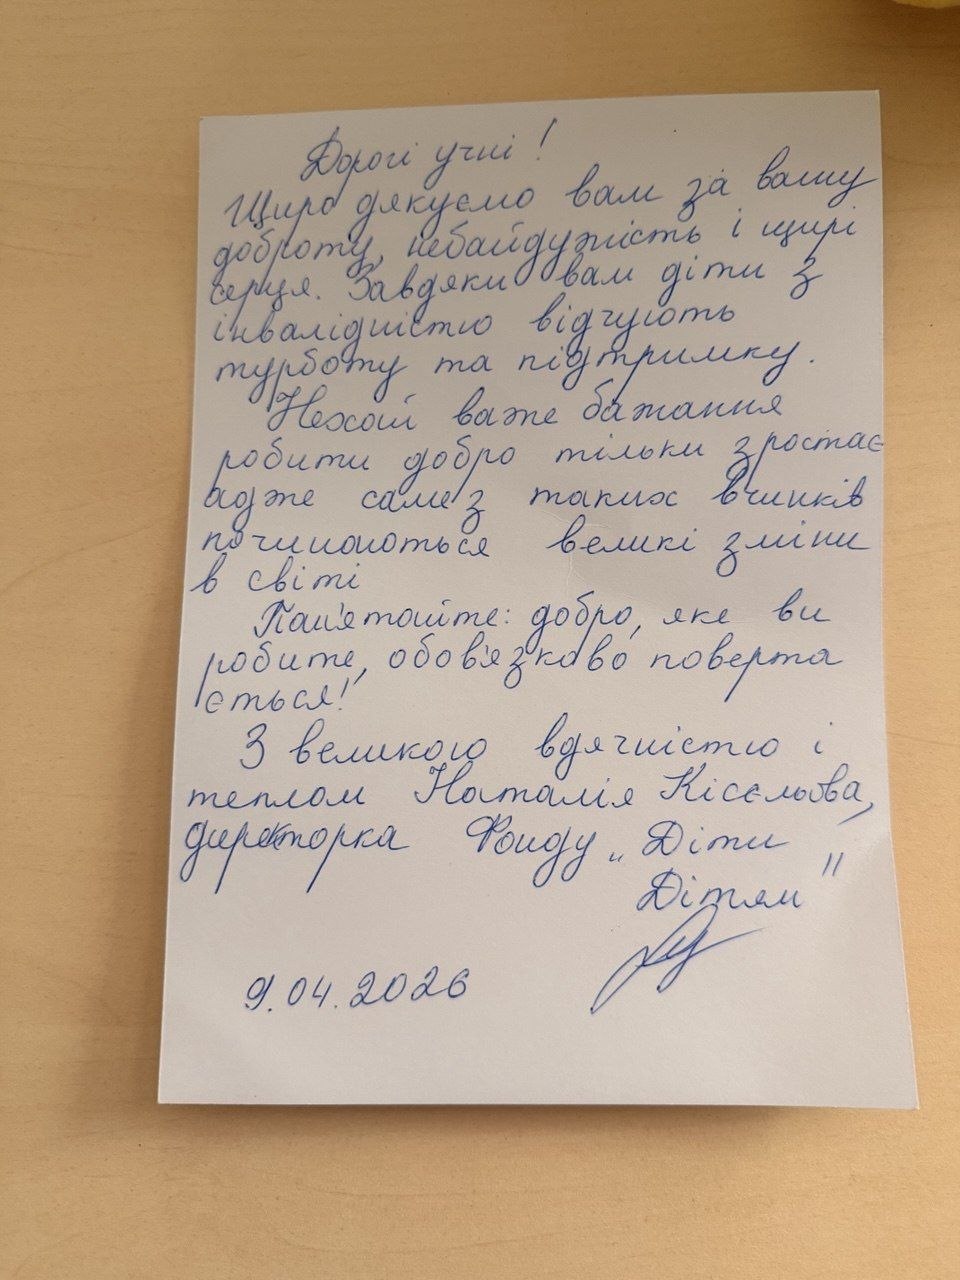 Дорогі учні!
Щиро дякуємо вам за вашу
доброту, небайдужість і щирі
серця. Завдяки вам діти з
інвалідністю відчують
турботу та підтримку.
Нехай ваше бажання
робити добро тільки зростає
адже саме з таких вчинків
починаються великі зміни
в світі
Пам'ятайте: добро, яке ви
робите, обов'язково поверта
ється!
З великою вдячністю і
теплом Наталія Кісєльова,
директорка Фонду „Діти
Дітям"
9.04.2026